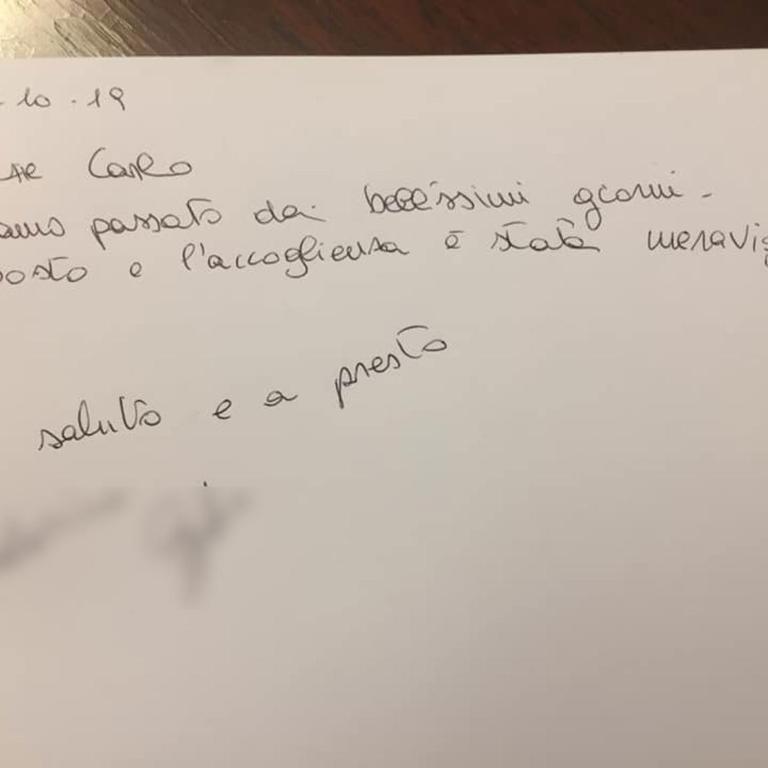 10.19
Carlo
passato dei bellissimi giorni.
e l'accoglienza è stata
saluto e a presto